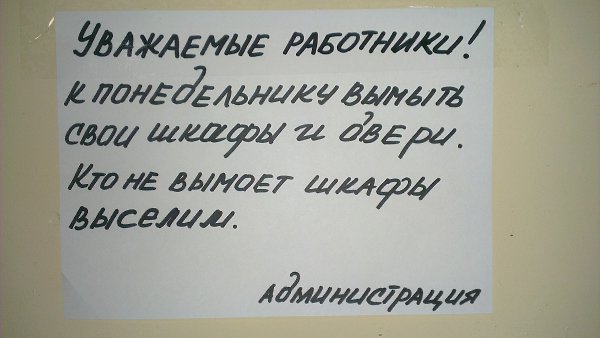 Уважаемые работники!
к понедельнику вымыть
свои шкафы и двери.
Кто не вымоет шкафы
выселим.
администрация